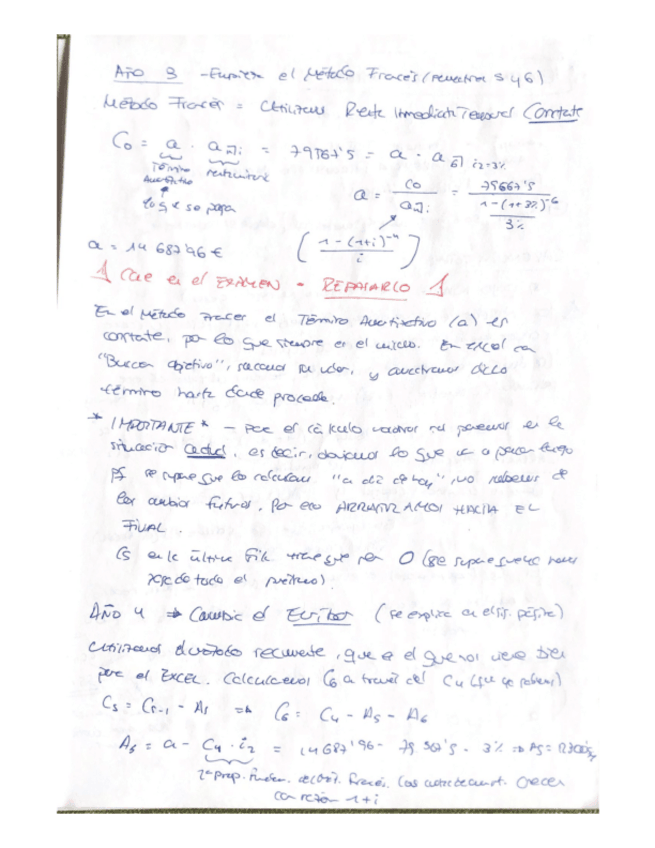 AÑO 3 - Empieza el Método Francés (semestres 5 y 6)
Método Francés = Utilizamos Renta Inmediata Temporal Constante
C₀ = a · a n┐i = 79567'5 = a · a 6┐ i₂=3%
Término Amortizativo
lo q se paga
a = C₀ / a n┐i = 79667'5 / (1-(1+3%)^-6 / 3%)
( 1-(1+i)^-n / i )
a = 14 687'96 €
¡ Cae en el EXAMEN - REPASARLO !
En el Método Francés el Término Amortizativo (a) es
constante, por lo que siempre es el mismo. En excel con
"Buscar objetivo", sacamos su valor, y arrastramos dicho
término hasta donde proceda.
* IMPORTANTE * - Para el cálculo nosotros nos ponemos en la
situación actual, es decir, lo que va a pasar luego
se supone que lo calculamos "a día de hoy", no sabemos de
los cambios futuros, por eso ARRASTRAMOS HACIA EL
FINAL.
en la última fila tiene que dar 0 (se supone que
todo el préstamo).
AÑO 4 ⇒ Cambia el Euribor (se explica en el sig. página)
Utilizamos el método recurrente, que es el que nos viene bien
para el EXCEL. Calculamos C₆ a través del C₄ (que ya sabemos)
C₅ = C₅₋₁ - A₅ ⇒ C₆ = C₄ - A₅ - A₆
A₅ = a - C₄ · i₂ = 14687'96 - 79 567'5 · 3% ⇒ A₅ =
2ª prop. Francés. Las cuotas de amort. crecen
con razón 1+i